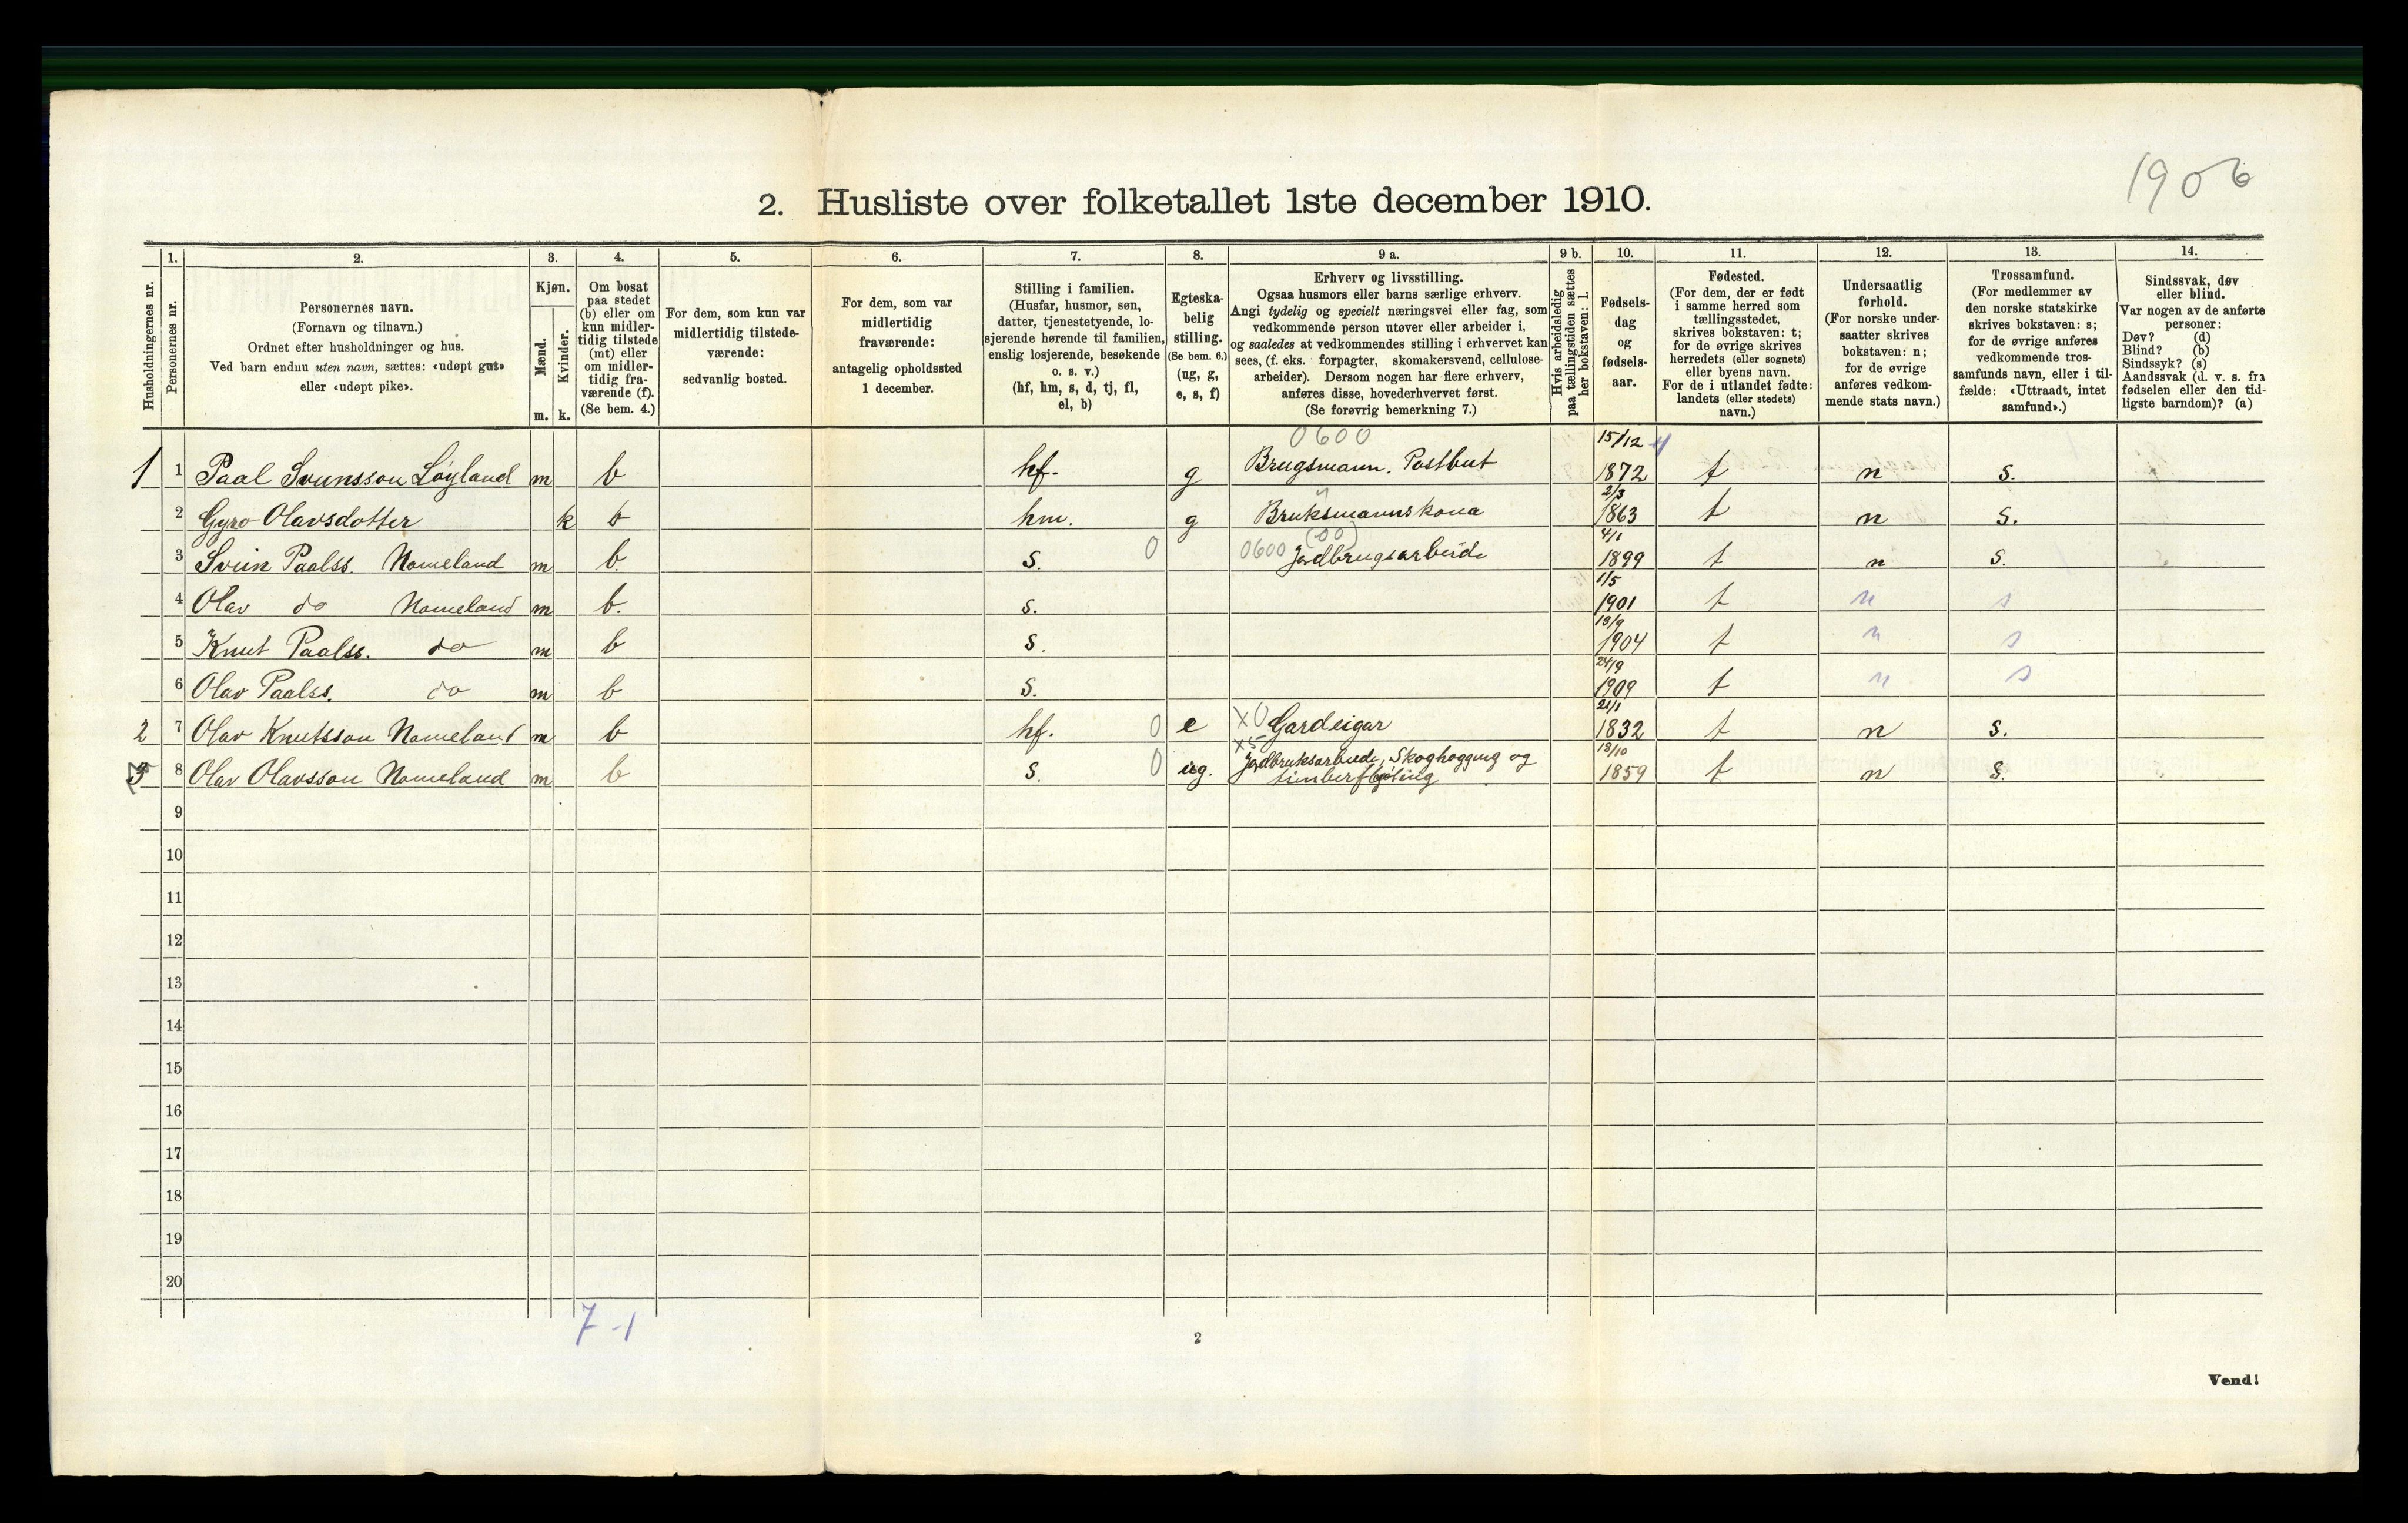 1906
2. Husliste over folketallet 1ste december 1910.
Husholdningernes nr.
1.
Personernes nr.
2.
Personernes navn.
(Fornavn og tilnavn.)
Ordnet efter husholdninger og hus.
Ved barn endnu uten navn, sættes: «udøpt gut»
eller «udøpt pike».
3.
Kjøn.
Mænd.
Kvinder.
m. k.
4.
Om bosat
paa stedet
(b) eller om
kun midler-
tidig tilstede
(mt) eller
om midler-
tidig fra-
værende (f).
(Se bem. 4.)
5.
For dem, som kun var
midlertidig tilstede-
værende:
sedvanlig bosted.
6.
For dem, som var
midlertidig
fraværende:
antagelig opholdssted
1 december.
7.
Stilling i familien.
(Husfar, husmor, søn,
datter, tjenestetyende, lo-
sjerende hørende til familien,
enslig losjerende, besøkende
o. s. v.)
(hf, hm, s, d, tj, fl,
el, b)
8.
Egteska-
belig
stilling.
(Se bem. 6.)
(ug, g,
e, s, f)
9 a.
Erhverv og livsstilling.
Ogsaa husmors eller barns særlige erhverv.
Angi tydelig og specielt næringsvei eller fag, som
vedkommende person utøver eller arbeider i,
og saaledes at vedkommendes stilling i erhvervet kan
sees, (f. eks. forpagter, skomakersvend, cellulose-
arbeider). Dersom nogen har flere erhverv,
anføres disse, hovederhvervet først.
(Se forøvrig bemerkning 7.)
9 b.
Hvis arbeidsledig
paa tællingstiden sættes
her bokstaven: l.
10.
Fødsels-
dag
og
fødsels-
aar.
11.
Fødested.
(For dem, der er født
i samme herred som
tællingsstedet,
skrives bokstaven: t;
for de øvrige skrives
herredets (eller sognets)
eller byens navn.
For de i utlandet fødte:
landets (eller stedets)
navn.)
12.
Undersaatlig
forhold.
(For norske under-
saatter skrives
bokstaven: n;
for de øvrige
anføres vedkom-
mende stats navn.)
13.
Trossamfund.
(For medlemmer av
den norske statskirke
skrives bokstaven: s;
for de øvrige anføres
vedkommende tros-
samfunds navn, eller i til-
fælde: «Uttraadt, intet
samfund».)
14.
Sindssvak, døv
eller blind.
Var nogen av de anførte
personer:
Døv? (d)
Blind? (b)
Sindssyk? (s)
Aandssvak (d. v. s. fra
fødselen eller den tid-
ligste barndom)? (a)
0600 15/12
1 1 Paal Svensson Løyland m b hf. g Brugsmann. Postbut 1872 t n s.
2/3
2 Gyro Olavsdotter k b hm. g Bruksmannskona 1863 t n s.
(00) 4/1
3 Svein Paalss. Nomeland m b. s. 0 0600 Jordbrugsarbeide 1899 t n s.
1/5
4 Olav do Nomeland m b. s. 1901 t n s
13/9
5 Knut Paalss. do m b s. 1904 t n s
24/9
6 Olav Paalss. do m b s. 1909 t n s
21/1
2 7 Olav Knutsson Nomeland m b hf. 0 e X0 Gardeigar 1832 t n s.
X5 13/10
3 8 Olav Olavsson Nomeland m b s. 0 ug. Jordbruksarbeide, Skoghogging og
timberfløting 1859 t n s.
9
10
11
12
13
14
15
16
17
18
19
20
7-1
2
Vend!